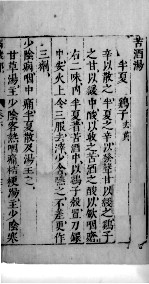 苦酒湯
半夏 鷄子去黃
辛以散之半夏之辛以發聲甘以緩之鷄子
之甘以緩中酸以收之苦酒之酸以斂咽瘡
右二味內半夏著苦酒中以鷄子殼置刀鐶
中安火上令三沸去滓少少含嚥之不差更作
三劑
少陰病咽中痛半夏散及湯主之
甘草湯主少陰客熱咽痛桔梗湯主少陰寒